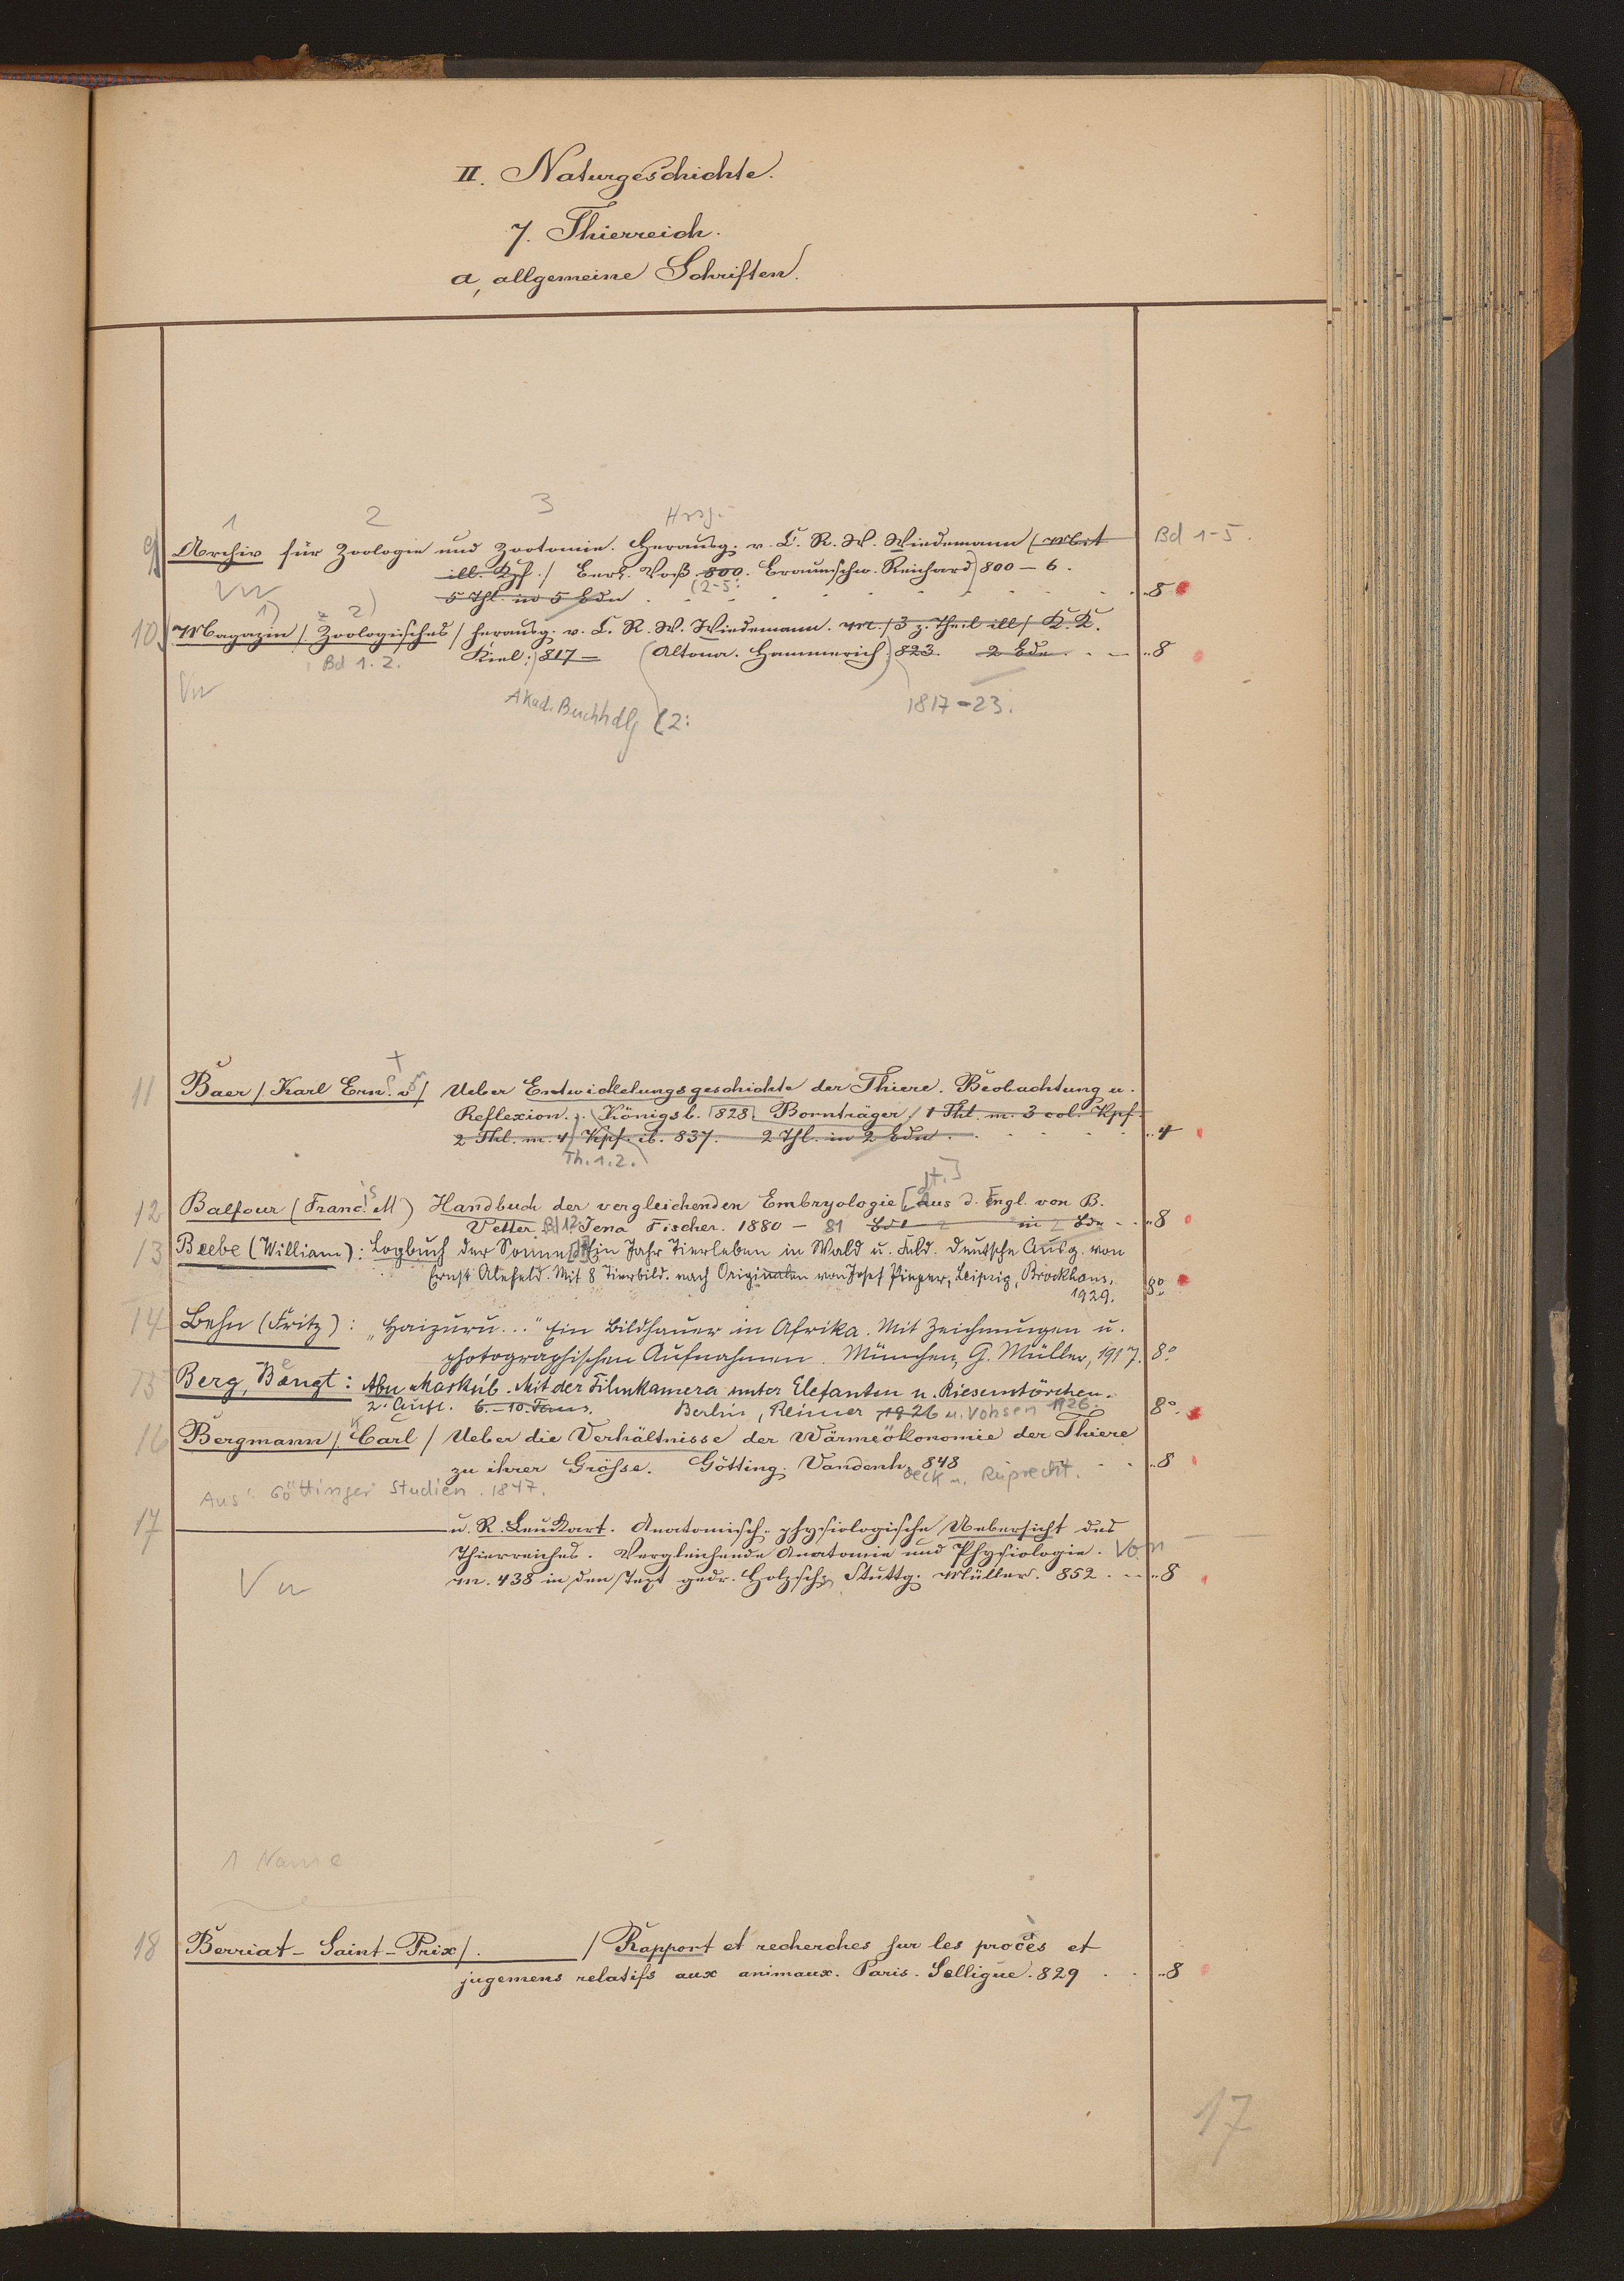 II. Naturgeschichte.
7. Thierreich.
a, allgemeine Schriften.
1 2 3 Hrsg.
9) Archiv für Zoologie und Zootomie. Herausg. v. C. R. W. Wiedemann (Mit Bd 1-5.
ill. Kpf./ Berl. Voß. 800. Braunschw. Reichard) 800-6.
Vn 5 Thl. in 5 Bdn (2-5: 8
1) 2)
10) Magazin/ Zoologisches/ herausg. v. C. R. W. Wiedemann. m./3 z. Theil ill/ K.K.
Bd 1.2. Kiel:) 817 — (Altona. Hammerich) 823. 2 Bde. 8
Vn Akad. Buchhdlg (2: 1817-23.
11 Baer/ Karl Ernst v/ Ueber Entwickelungsgeschichte der Thiere. Beobachtung u.
Reflexion. Königsb. 828. Bornträger/ 1 Thl. m. 3 col. Kpf.
2 Thl. m. 4 Kpf. ib. 837. 2 Thl. in 2 Bdn. 4
Th. 1.2.
dt.]
12 Balfour (Francis M) Handbuch der vergleichenden Embryologie [Aus d. Engl. von B.
Vetter. Bd 1.2 Jena Fischer. 1880 — 81 Bd 1 2 in 2 Bdn 8
13 Beebe (William): Logbuch der Sonne [dt.] Ein Jahr Tierleben in Wald u. Feld. Deutsche Ausg. von
Ernst Alefeld. Mit 8 Tierbild. nach Originalen von Josef Pieper, Leipzig, Brockhaus,
1929. 8º
14 Behn (Fritz): „Haizuru..." Ein Bildhauer in Afrika. Mit Zeichnungen u.
photographischen Aufnahmen. München, G. Müller, 1917. 8º
15 Berg, Bengt: Abu Markúb. Mit der Filmkamera unter Elefanten u. Riesenstörchen.
2. Aufl. 6.-10. Taus. Berlin, Reimer 1926 u. Vohsen 1926. 8º.
16 Bergmann/ Carl/ Ueber die Verhältnisse der Wärmeökonomie der Thiere
zu ihrer Grösse. Götting. Vandenh. 848 8
oeck u. Ruprecht.
Aus: Göttinger Studien. 1847.
17 u. R. Leuckart. Anatomisch-physiologische Uebersicht des
Thierreiches. Vergleichende Anatomie und Physiologie. Von
Vn m. 438 in den Text gedr. Holzsch. Stuttg. Müller. 852. 8
1 Name
18 Berriat-Saint-Prix/. / Rapport et recherches sur les procès et
jugemens relatifs aux animaux. Paris. Selligue. 829 8
17